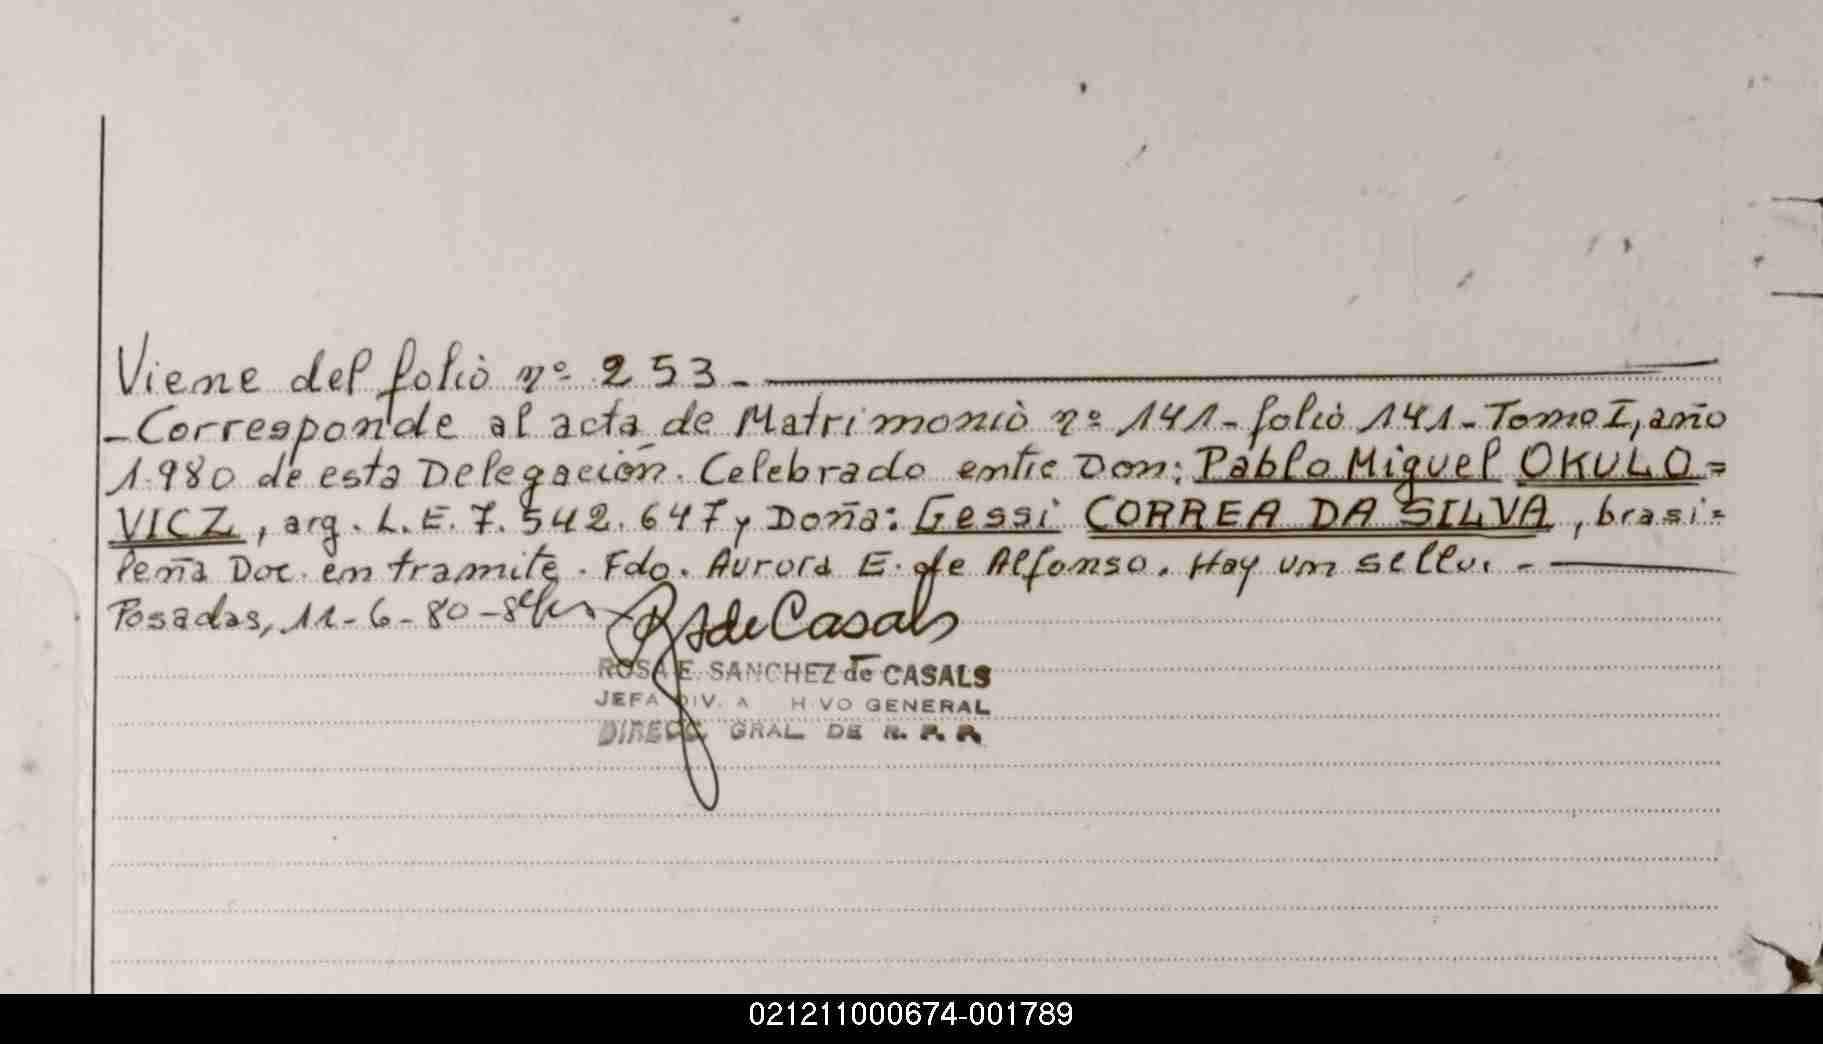 Viene del folio nº 253.-
-Corresponde al acta de Matrimonio nº 141-folio 141-Tomo I, año
1.980 de esta Delegación. Celebrado entre Don: Pablo Miguel OKULO=
VICZ, arg. L.E. 7.542.647 y Doña: Gessi CORREA DA SILVA, brasi=
leña Doc. en tramite. Fdo. Aurora E. de Alfonso. Hay un sello. -
Posadas, 11-6-80-
de Casals
ROSA E. SANCHEZ de CASALS
JEFA DIV. A HIVO GENERAL
DIRECC. GRAL DE R. P. P.
021211000674-001789